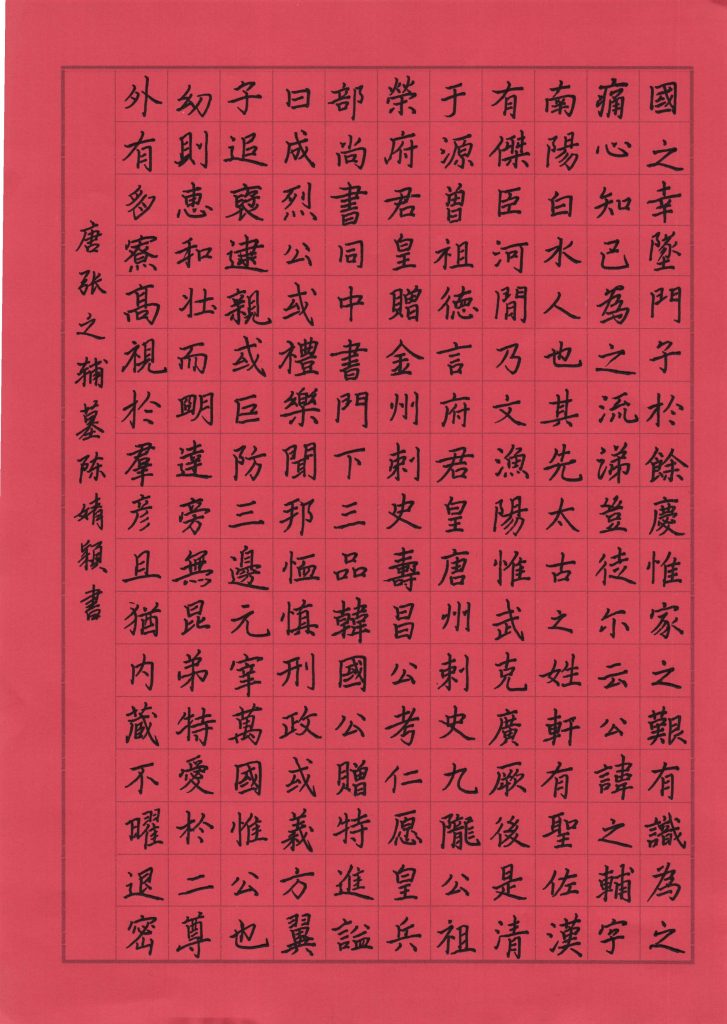 國之幸墜門子於餘慶惟家之艱有識為之
痛心知己為之流涕豈徒尓云公諱之輔字
南陽白水人也其先太古之姓軒有聖佐漢
有傑臣河間乃文漁陽惟武克廣厥後是清
于源曾祖德言府君皇唐州刺史九隴公祖
榮府君皇贈金州刺史壽昌公考仁愿皇兵
部尚書同中書門下三品韓國公贈特進謚
曰成烈公或禮樂聞邦恤慎刑政或義方翼
子追褒逮親或巨防三邊元宰萬國惟公也
幼則惠和壯而明達旁無昆弟特愛於二尊
外有多寮高視於羣彥且猶内蔵不曜退密
唐张之辅墓陈婧颖書